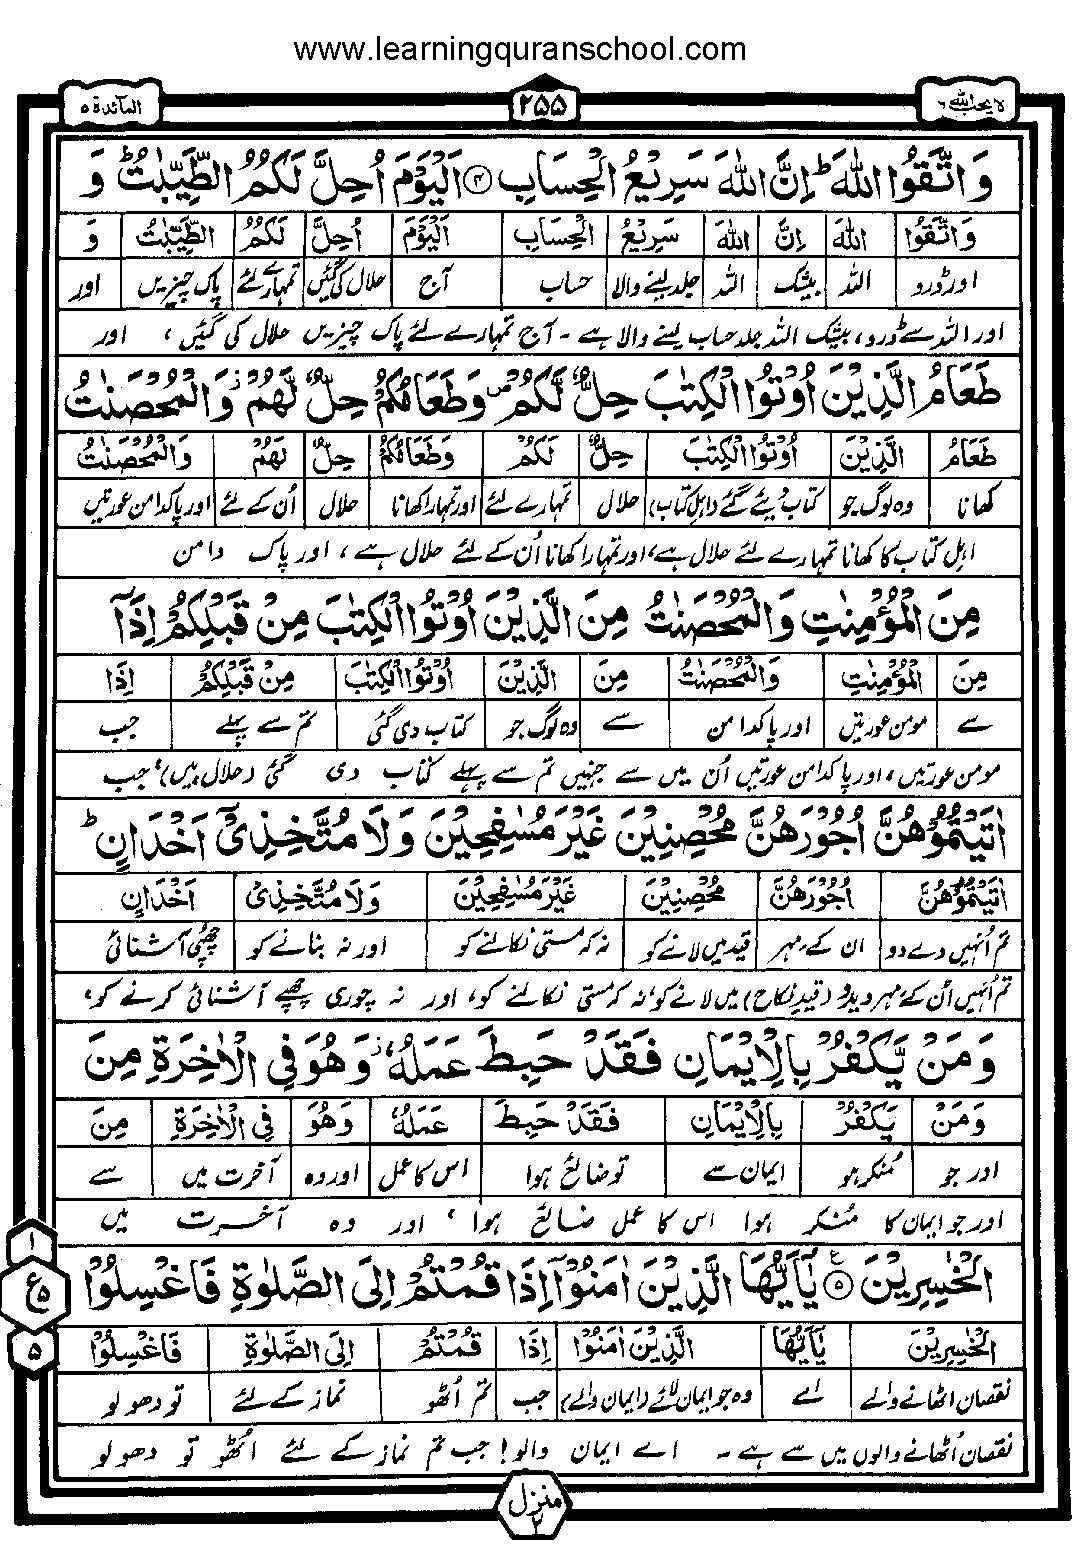 www.learningquranschool.com
لا یحب اللہ ٦
٢٥٥
المآئدة ٥
وَاتَّقُوا اللّٰهَ ؕ اِنَّ اللّٰهَ سَرِيْعُ الْحِسَابِ ۴ اَلْيَوْمَ اُحِلَّ لَكُمُ الطَّيِّبٰتُ ؕ وَ
وَاتَّقُوا اللّٰهَ اِنَّ اللّٰهَ سَرِيْعُ الْحِسَابِ اَلْيَوْمَ اُحِلَّ لَكُمُ الطَّيِّبٰتُ وَ
اور ڈرو اللہ بیشک اللہ جلد لینے والا حساب آج حلال کی گئیں تمہارے لئے پاک چیزیں اور
اور اللہ سے ڈرو، بیشک اللہ جلد حساب لینے والا ہے ۔ آج تمہارے لئے پاک چیزیں حلال کی گئیں، اور
طَعَامُ الَّذِيْنَ اُوْتُوا الْكِتٰبَ حِلٌّ لَّكُمْ ۪ وَطَعَامُكُمْ حِلٌّ لَّهُمْ ۡ وَالْمُحْصَنٰتُ
طَعَامُ الَّذِيْنَ اُوْتُوا الْكِتٰبَ حِلٌّ لَكُمْ وَطَعَامُكُمْ حِلٌّ لَهُمْ وَالْمُحْصَنٰتُ
کھانا وہ لوگ جو کتاب دیئے گئے (اہل کتاب) حلال تمہارے لئے اور تمہارا کھانا حلال اُن کے لئے اور پاکدامن عورتیں
اہل کتاب کا کھانا تمہارے لئے حلال ہے، اور تمہارا کھانا اُن کے لئے حلال ہے، اور پاک دامن
مِنَ الْمُؤْمِنٰتِ وَالْمُحْصَنٰتُ مِنَ الَّذِيْنَ اُوْتُوا الْكِتٰبَ مِنْ قَبْلِكُمْ اِذَاۤ
مِنَ الْمُؤْمِنٰتِ وَالْمُحْصَنٰتُ مِنَ الَّذِيْنَ اُوْتُوا الْكِتٰبَ مِنْ قَبْلِكُمْ اِذَا
سے مومن عورتیں اور پاکدامن سے وہ لوگ جو کتاب دی گئی تم سے پہلے جب
مومن عورتیں، اور پاکدامن عورتیں اُن میں سے جنہیں تم سے پہلے کتاب دی گئی (حلال ہیں)، جب
اٰتَيْتُمُوْهُنَّ اُجُوْرَهُنَّ مُحْصِنِيْنَ غَيْرَ مُسٰفِحِيْنَ وَلَا مُتَّخِذِيْۤ اَخْدَانٍ ؕ
اٰتَيْتُمُوْهُنَّ اُجُوْرَهُنَّ مُحْصِنِيْنَ غَيْرَ مُسٰفِحِيْنَ وَلَا مُتَّخِذِيْ اَخْدَانٍ
تم اُنہیں دے دو ان کے مہر قید میں لانے کو نہ کہ مستی نکالنے کو اور نہ بنانے کو چھپی آشنائی
تم اُنہیں اُن کے مہر دیدو (قید نکاح) میں لانے کو، نہ کہ مستی نکالنے کو، اور نہ چوری چھپے آشنائی کرنے کو،
وَمَنْ يَّكْفُرْ بِالْاِيْمَانِ فَقَدْ حَبِطَ عَمَلُهٗ ۡ وَهُوَ فِي الْاٰخِرَةِ مِنَ
وَمَنْ يَّكْفُرْ بِالْاِيْمَانِ فَقَدْ حَبِطَ عَمَلُهٗ وَهُوَ فِي الْاٰخِرَةِ مِنَ
اور جو مُنکر ہو ایمان سے تو ضائع ہوا اس کا عمل اور وہ آخرت میں سے
اور جو ایمان کا مُنکر ہوا اس کا عمل ضائع ہوا، اور وہ آخرت میں
الْخٰسِرِيْنَ ۵ ع يٰۤاَيُّهَا الَّذِيْنَ اٰمَنُوْۤا اِذَا قُمْتُمْ اِلَى الصَّلٰوةِ فَاغْسِلُوْا
۱
ع ۵
۵
الْخٰسِرِيْنَ يٰۤاَيُّهَا الَّذِيْنَ اٰمَنُوْا اِذَا قُمْتُمْ اِلَى الصَّلٰوةِ فَاغْسِلُوْا
نقصان اٹھانے والے اے وہ جو ایمان لائے (ایمان والے) جب تم اُٹھو نماز کے لئے تو دھو لو
نقصان اُٹھانے والوں میں سے ہے ۔ اے ایمان والو! جب تم نماز کے لئے اُٹھو تو دھو لو
منزل ٢